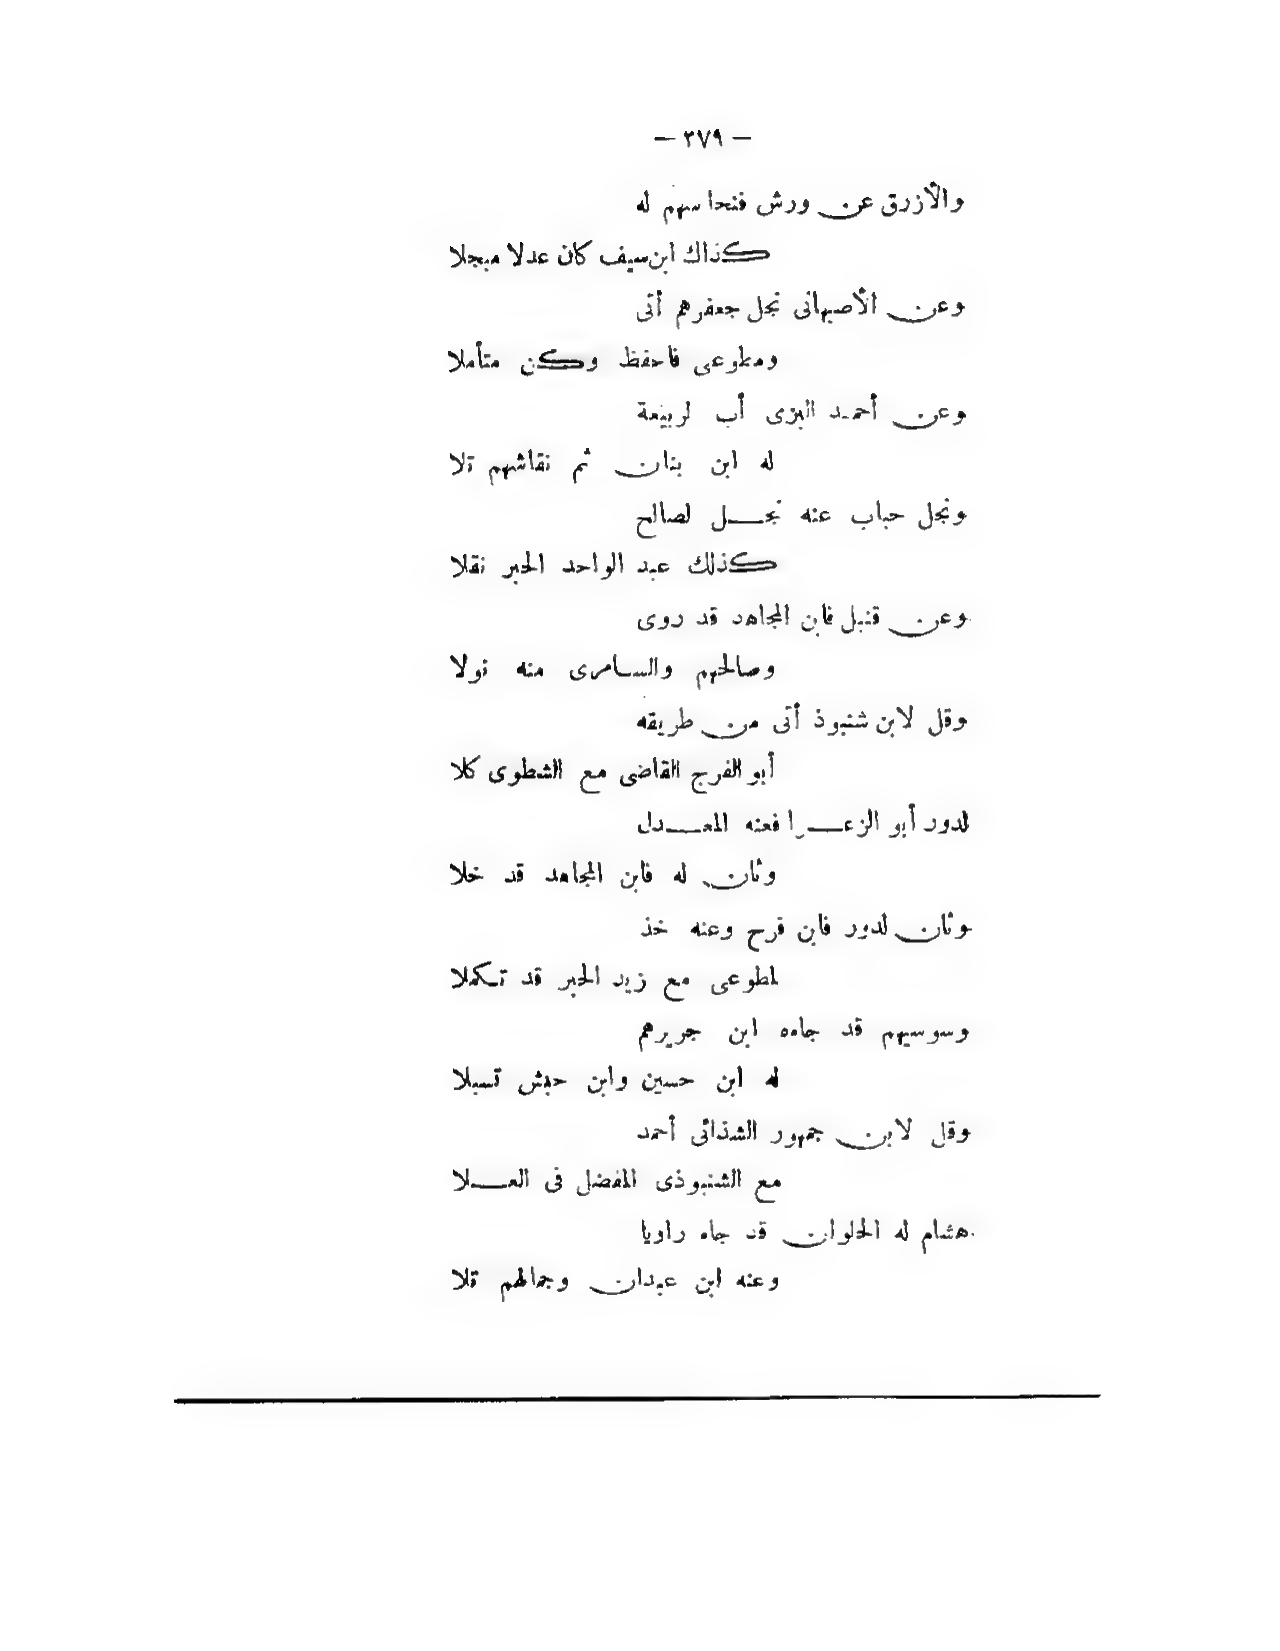 — ٣٧٩ —
والأزرق عن ورش فنحاسهم له
كذاك ابن سيف كان عدلا مبجلا
وعن الأصبهانى نجل جعفرهم أتى
ومطوعى فاحفظ وكن متأملا
وعن أحمد البزى أب لربيعة
له ابن بنان ثم نقاشهم تلا
ونجل حباب عنه نجل لصالح
كذلك عبد الواحد الحبر نقلا
وعن قنبل فابن المجاهد قد روى
وصالحهم والسامرى منه نولا
وقل لابن شنبوذ أتى من طريقه
أبو الفرج القاضى مع الشطوى كلا
لدور أبو الزعرا فعنه المعدل
وثان له فابن المجاهد قد خلا
وثان لدور فابن فرح وعنه خذ
لمطوعى مع زيد الحبر قد تكملا
وسوسيهم قد جاءه ابن جريرهم
له ابن حسين وابن حبش تسبلا
وقل لابن جمهور الشذائى أحمد
مع الشنبوذى المفضل فى العلا
هشام له الحلوان قد جاء راويا
وعنه ابن عبدان وجمالهم تلا